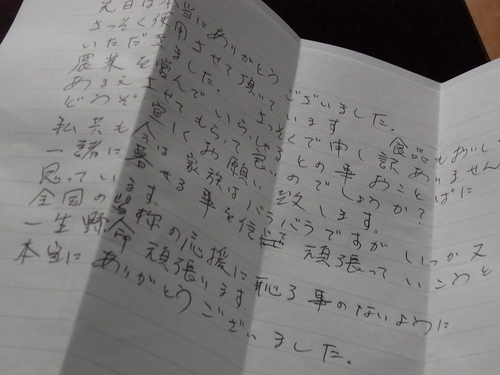 先日は本当にありがとうございました。
さっそく使用させて頂いています。食品もおいしく
いただきました。さっそくで申し訳ありません
農業を営んでいらっしゃるとの事おことばに
あまえさせてもらって いのでしょうか?
どうぞ宜しくお願い致します。
私共も今は家族はバラバラですがいつか又
一諸に暮せる事を信じ 頑張っていこうと
思っています。
全国の皆称の応援に恥る事のないように
一生野命 頑張ります。
本当にありがとうございました。